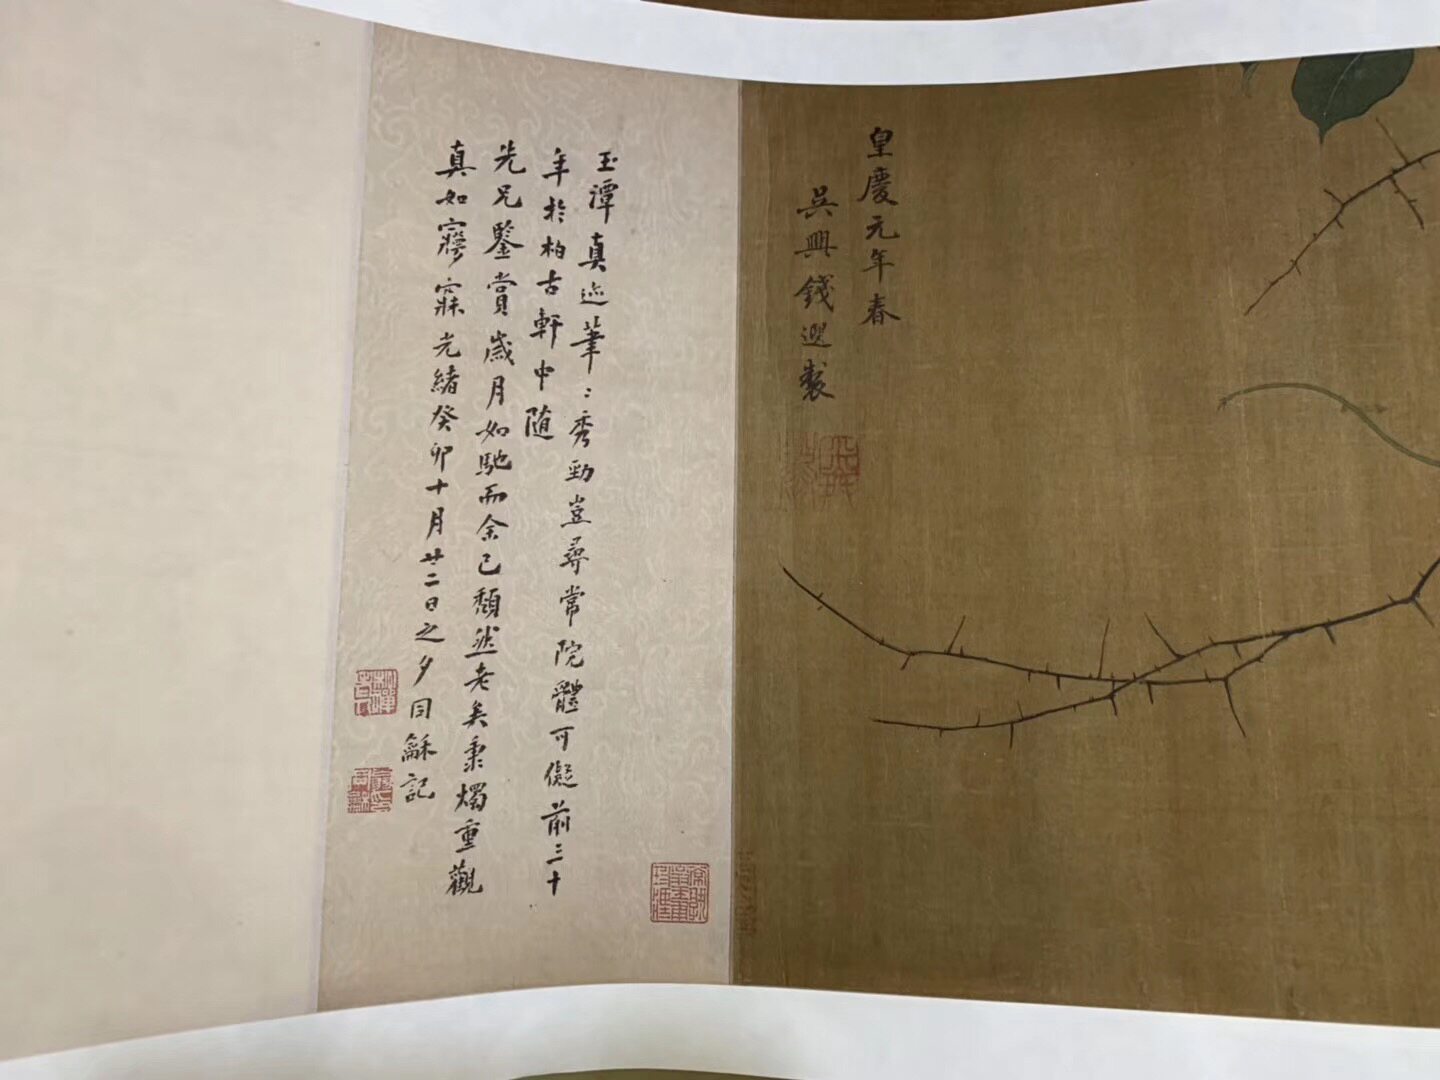 皇慶元年春
吳興錢選製
玉潭真迹筆〻秀勁豈尋常院體可儗前三十
年於柏古軒中隨
先兄鑒賞歲月如馳而余已頹然老矣秉燭重觀
真如寤寐光緒癸卯十月廿二日之夕同龢記